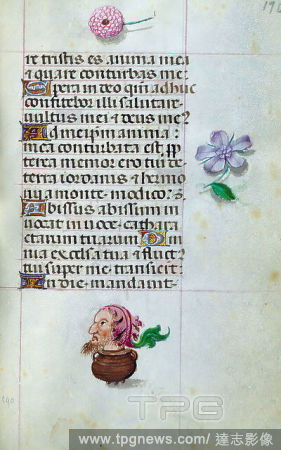 re tristis es anima mea
et quare conturbas me:
Spera in deo qm̄ adhuc
confitebor illi salutare
vultus mei et deus me?
Ad meipm anima
mea conturbata est pp
terea memor ero tui de
terra iordanis et hermo
a monte modico:
Abissus abissum in
vocat in voce cathara
ctarum tuarum Om
nia excelsa tua et fluct?
tui super me transier̄t
In die mandauit
TPG
www.tpgnews.com / 達志影像